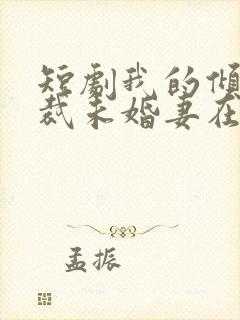 短剧我的倾
裁未婚妻在
孟振